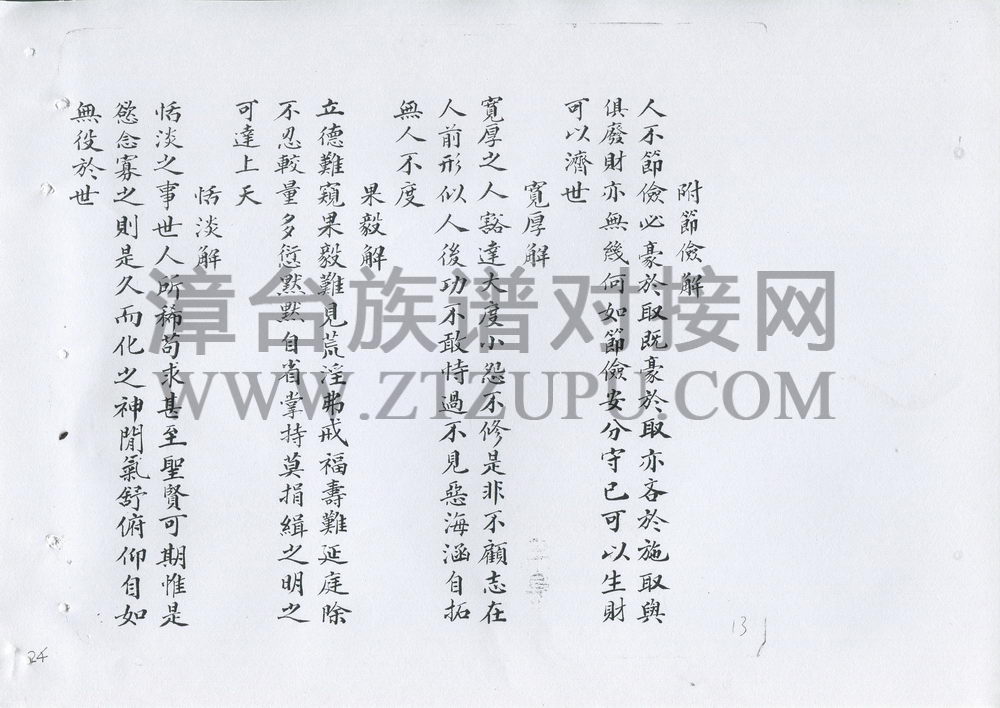 附節儉解
人不節儉必豪於取既豪於取亦吝於施取與
俱廢財亦無幾何如節儉安分守己可以生財
可以濟世
寬厚解
寬厚之人豁達大度小怨不修是非不顧志在
人前形似人後功不敢恃過不見惡海涵自拓
無人不度
果毅解
立德難窺果毅難見荒淫弗戒福壽難延庭除
不忍較量多愆默默自省掌持莫捐緝之明之
可達上天
恬淡解
恬淡之事世人所稀苟求甚至聖賢可期惟是
慾念寡之則是久而化之神閒氣舒俯仰自如
無役於世
漳台族谱对接网
WWW.ZTZUPU.COM
13
24